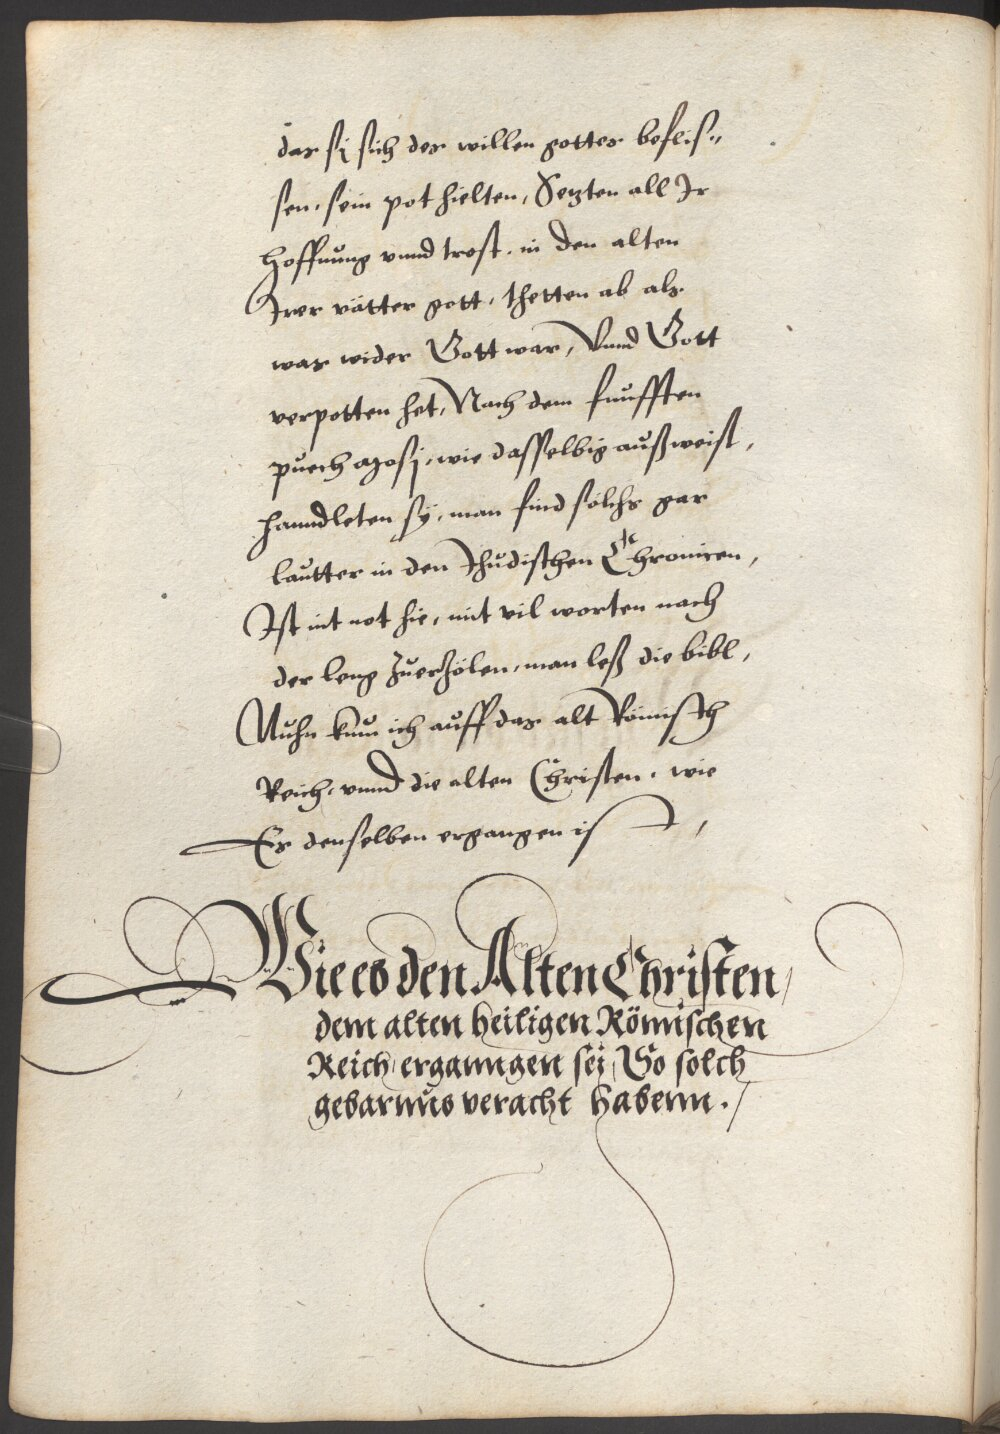 das sj sich des willen gottes befliß„
sen, sein pot hielten, Setzten all Ir
hoffnŭng vnnd trost, in den alten
Irer vätter gott, thetten ab als
was wider Gott war, Vnnd Gott
verpotten het, Nach dem fŭnfften
pŭech Mosj, wie dasselbig außweist,
hanndleten sÿ, man find sölchs gar
laŭtter in den Jhŭdischen Chronicen,
Ist nit not hie, mit vil worten nach
der leng Zŭerhölen, man leß die bibl,
Nŭhn kŭm ich aŭff das alt Römisch
Reich, vnnd die alten Christen, wie
Es denselben ergangen ist,
Wie es den Alten Christen/
dem alten heiligen Römischen
Reich/ erganngen sej, So solch
gebarnŭs veracht habenn./